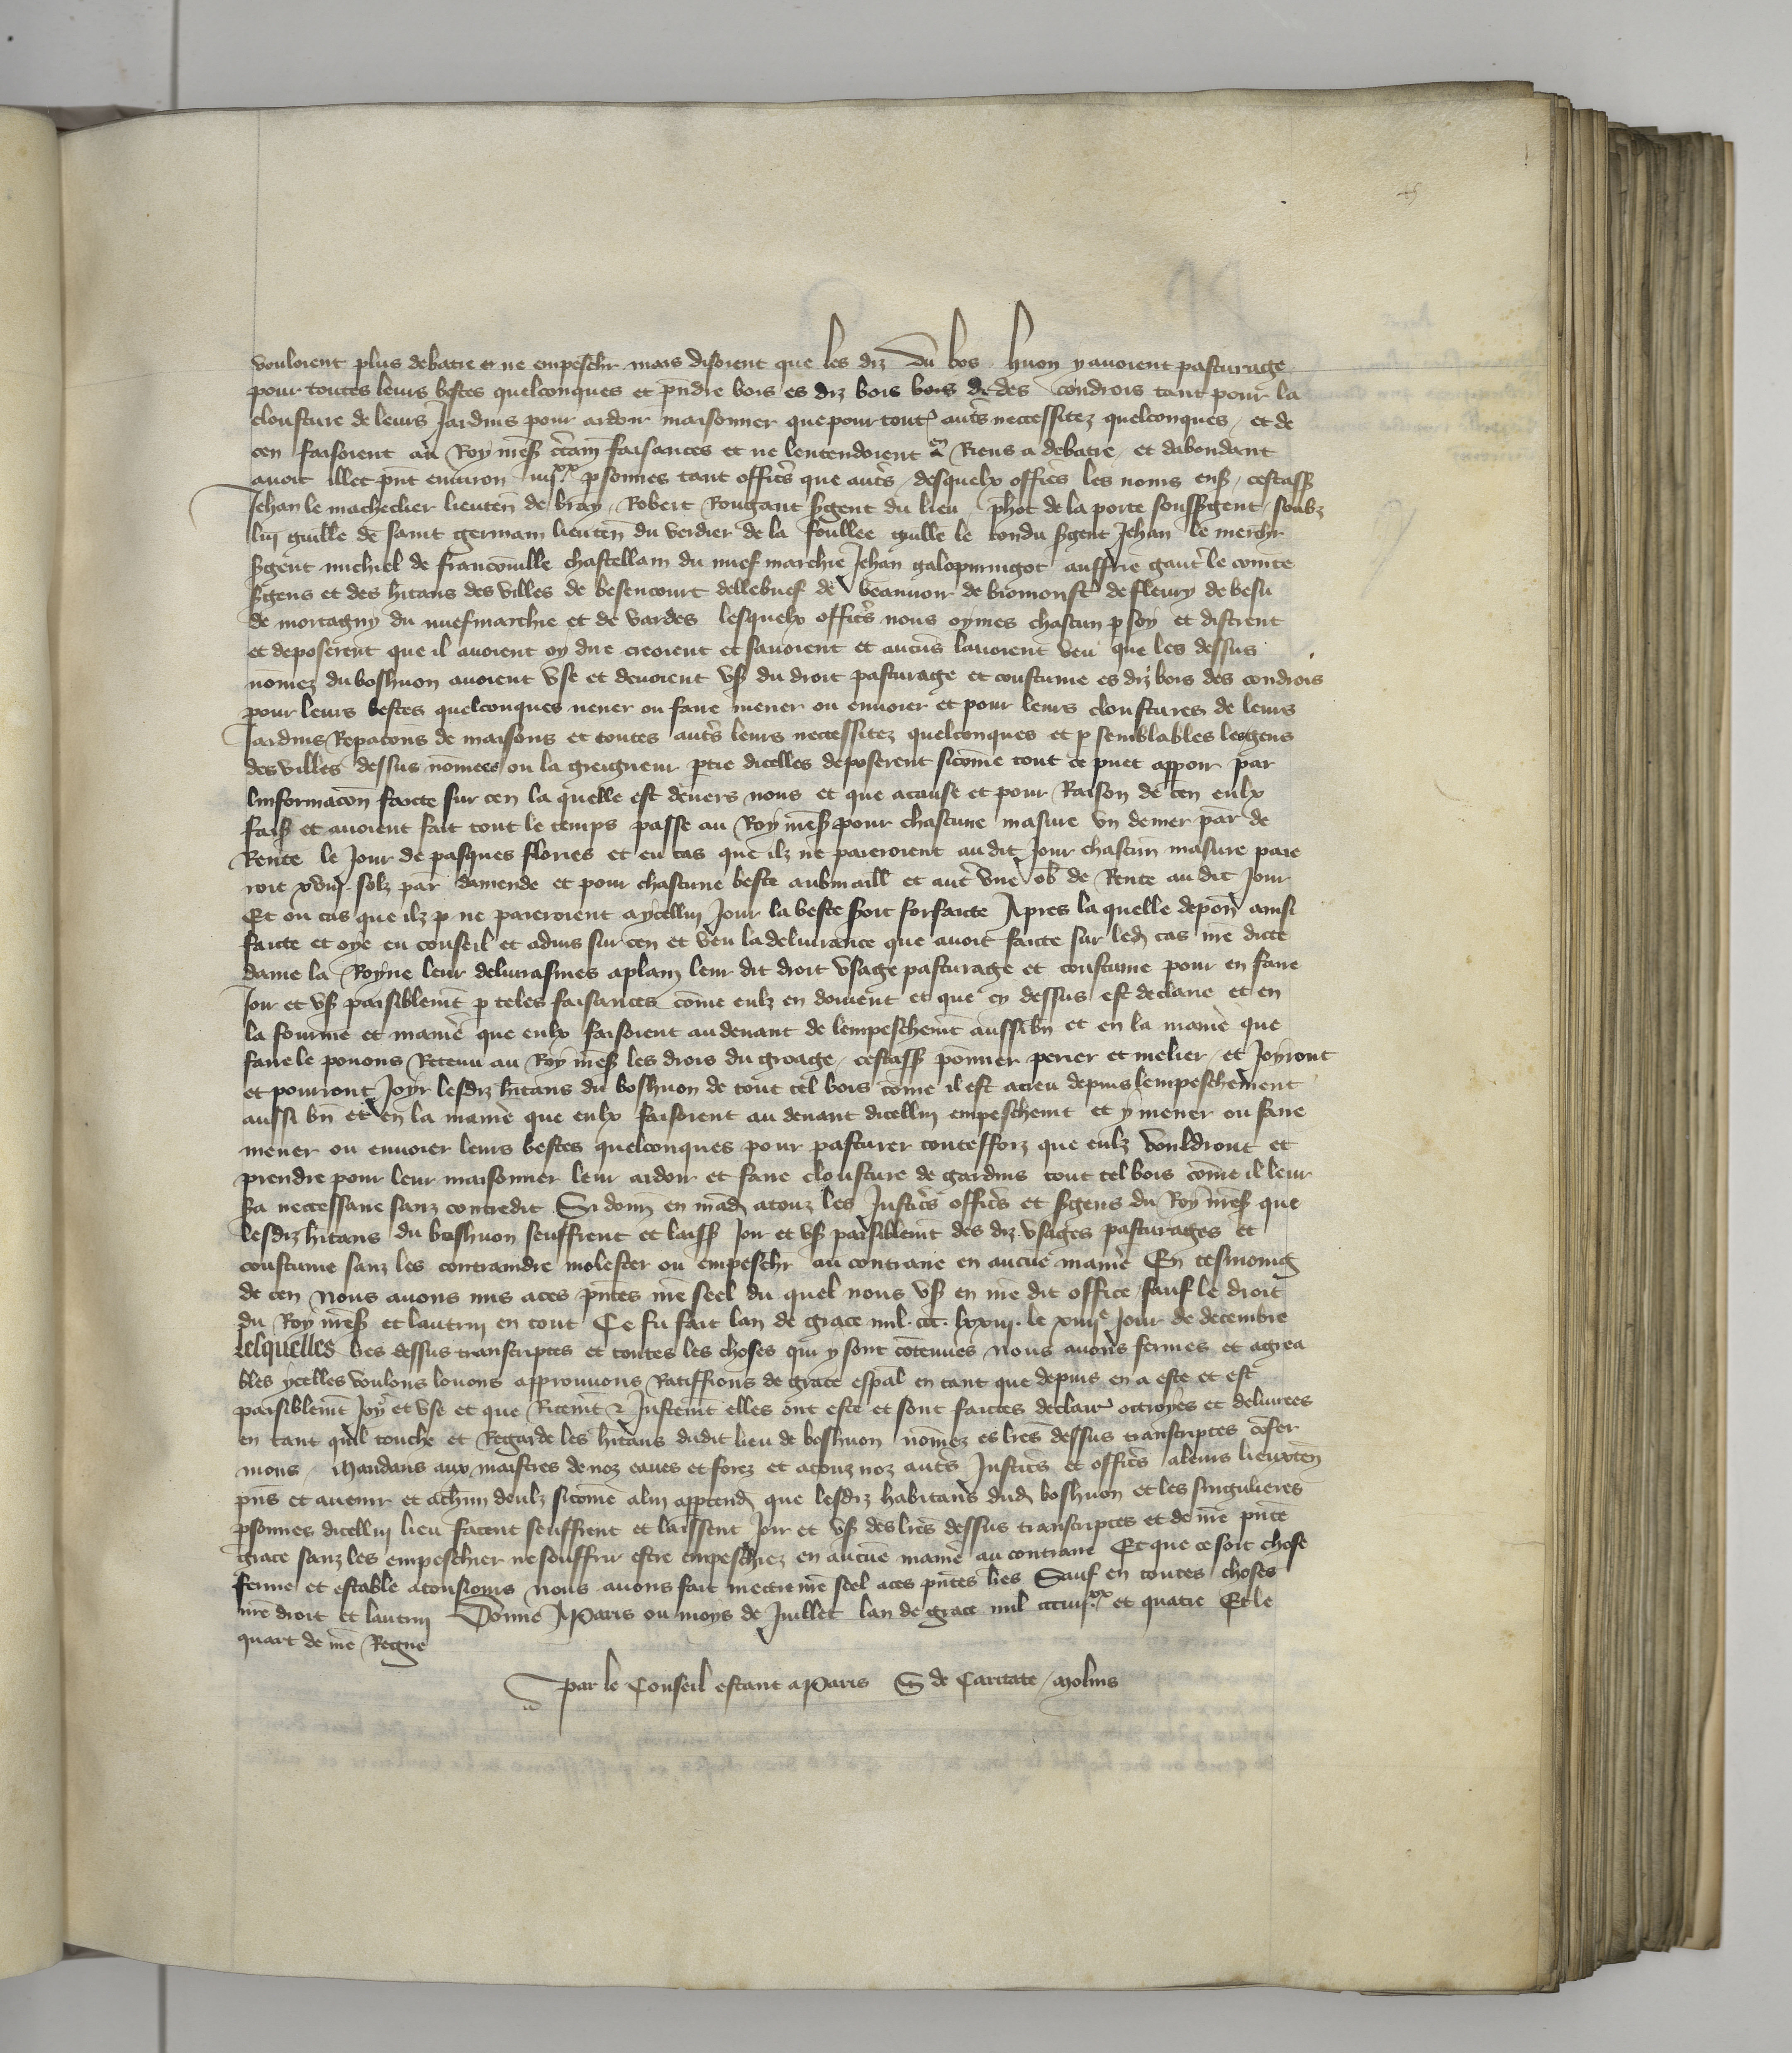 vouloient plus debatre et ne empeschr mais disoient que les diz Du bos huon y avoient pasturage
pour toutes leurs bestes quelconques et pndre bois es diz bois bois de des Condrois tant pour la
closture de leurs Jardins pour ardoir maisonner que pour tout autrs neccessitez quelconques / et de
cen faisoient au Roy mes ctain faisances et ne lentendoient en Riens a debatre / et dabondant
avoit illec pnt environ iiijxx psonnes tant officrs que autrs / desquelx officrs les noms ens / cestass
Jehan le machecher lieuten de bray / Robert Rougant sgent du lieu phot de la porte soussgent / soubz
luy guille de saint germain lieuten du verdier de la foullee guille le tondu sgent Jehan le merchr
sgent michiel de francouville chastellain du nuef marchie Jehan galopin nigot auffrie gautr le comte
sgens et des hitans des villes de besencourt dellebuef de beauvoir de bromonst de fleury de besu
de mortagny du nuefmarchie et de vardes lesquelx officrs nous oymes chascun p soy et distrent
et deposerent que il avoient oy dire creoient et savoient et aucuns lavoient veu que les dessus
nomez du boshuon avoient use et devoient us du droit pasturage et coustume es diz bois des condrois
pour leurs bestes quelconques mener ou faire mener ou envoier et pour leurs clostures de leurs
Jardins Repacons de maisons et toutes autrs leurs neccessitez quelconques et p semblables les gens
des villes dessus nomees ou la greigneur ptie dicelles deposerent sicome tout ce puet apoir par
linformacon faicte sur cen la quelle est devers nous et que acause et pour Raison de cen eulx
fais et avoient fait tout le temps passe au Roy mes pour chascune masure un denier par de
Rente le Jour de pasques flories et en cas que ilz ne paieroient audit Jour chascun masure paie
roit xviij solz par damende et pour chascune beste aubmaill et autr une ob de Rente au dit Jour
Et ou cas que ilz p ne paieroient aycelluy Jour la beste soit forfaicte Apres la quelle depon ainsi
faicte et oye eu conseil et advis sur cen et veu la delivrance que avoit faicte sur led cas me dicte
dame la Royne leur delivrasmes aplain leur dit droit usage pasturage et coustume pour en faire
Joir et us paisiblemt p teles faisances come eulz en doivent et que cy dessus est declaire et en
la fourme et manie que eulx faisoient audevant de lempeschemt aussi bn et en la manie que
faire le povons Retenu au Roy mes les drois du groage / cestass pommier perier et meslier / et Joyront
et pourront Joyr lesdiz hitans du boshuon de tout tel bois come il est acreu depuis lempeschement
aussi bn et en la manie que eulx faisoient au devant dicelluy empeschemt et y mener ou faire
mener ou envoier leurs bestes quelconques pour pasturer toutesfforz que eulz vouldront et
prendre pour leur maisonner leur ardoir et faire closture de gardins tout tel bois come il leur
sa neccessaire sanz contredit Si donn en mad atouz les Justicrs officrs et sgens du Roy mes que
lesdiz hitans du boshuon seuffrent et laiss Joir et us paisiblemt des diz usages pasturages et
coustume sanz les contraindre molester ou empeschr au contraire en aucue manie En tesmoing
de cen Nous avons mis aces pntes nre seel du quel nous us en nre dit office / sauf le droit
du Roy mes et lautruy en tout Ce fu fait lan de grace mil ccc lxxiij le xiiije Jour de decembre
Lesquelles lres dessus transcriptes et toutes les choses qui y sont contenues nous avons fermes et agrea
bles ycelles voulons louons approuvons Ratiffions de grace espal en tant que depuis en a este et est
paisiblemt Joy et use et que Ritemt & Justemt elles ont este et sont faictes declair octroyes et delivrees
en tant quil touche et Regarde les hitans dudit lieu de boshuon nomez es lres dessus transcriptes cofer
mons / Mandans aux maistres de noz eaues et forez et atouz noz autrs Justicrs et officrs aleurs lieuxten
pns et avenir et achun deulz sicome aluy apptend que lesdiz habitans dud boshuon et les singulieres
psonnes dicelluy lieu facent seuffrent et laissent Joir et us des lres dessus transcriptes et de nre pnte
grace sanz les empeschier ne souffrir estre empeschiez en aucue manie au contraire Et que ce soit chose
ferme et estable atousiours nous avons fait mectre nre seel aces pntes lres Sauf en toutes choses
nre droit et lautruy Donne A Paris ou moys de Juillet lan de grace mil ccciiijxx et quatre Et le
quart de nre Regne
Par le Conseil estant a Paris G de Caritate / Molins